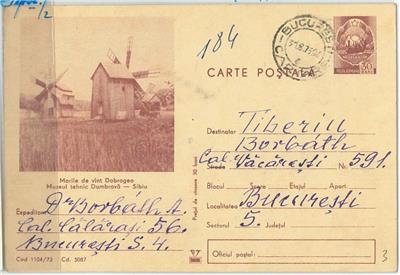 184
BUCUREȘTI
CARTE POȘTALĂ
50
Morile de vint Dobrogea
Muzeul tehnic Dumbrava — Sibiu
Expeditor Dr Borbáth A.
Cal. Călărași 56.
București S. 4.
Cod 1104/73 Cd. 5087
Prețul de vînzare 50 bani
Destinatar Tiberiu
Borbáth
Strada Cal. Văcărești Nr. 591.
Blocul Scara Etajul Apart.
Localitatea București
Sector 5. Județul
Oficiul poștal:
3